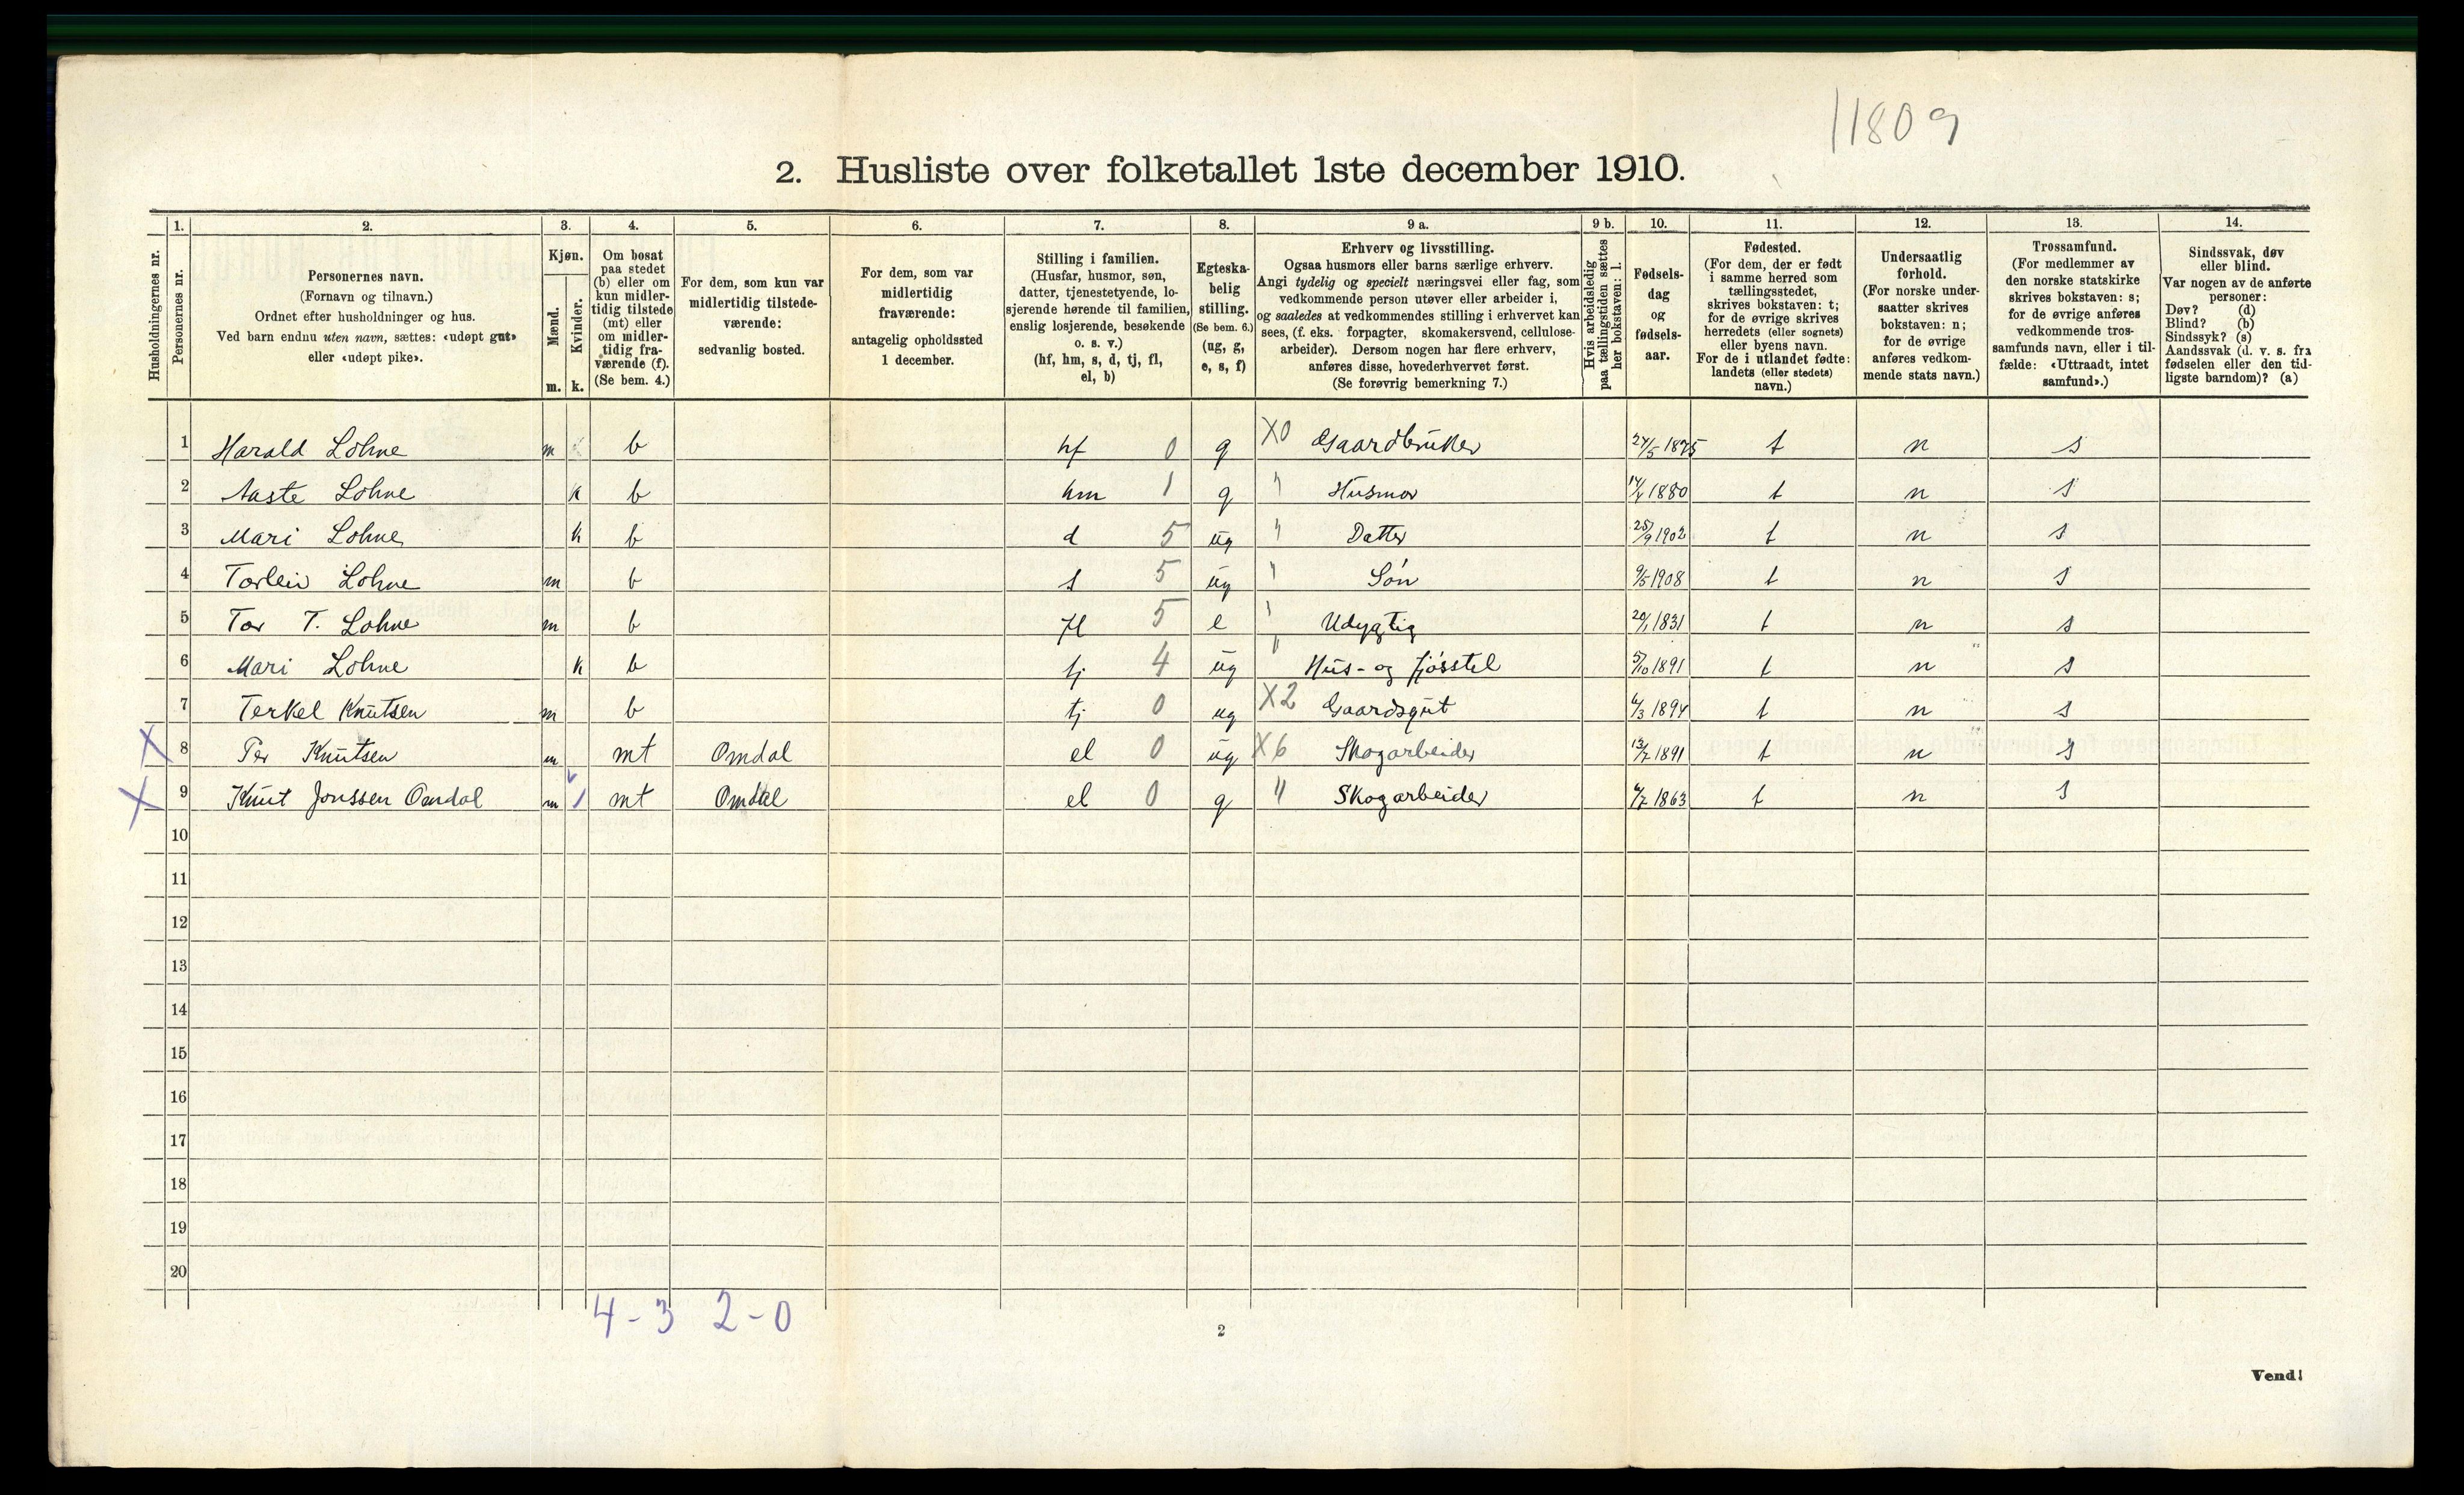 11809
2. Husliste over folketallet 1ste december 1910.
Husholdningernes nr.
1. Personernes nr.
2. Personernes navn.
(Fornavn og tilnavn.)
Ordnet efter husholdninger og hus.
Ved barn endnu uten navn, sættes: «udøpt gut»
eller «udøpt pike».
3. Kjøn.
Mænd. m.
Kvinder. k.
4. Om bosat
paa stedet
(b) eller om
kun midler-
tidig tilstede
(mt) eller
om midler-
tidig fra-
værende (f).
(Se bem. 4.)
5. For dem, som kun var
midlertidig tilstede-
værende:
sedvanlig bosted.
6. For dem, som var
midlertidig
fraværende:
antagelig opholdssted
1 december.
7. Stilling i familien.
(Husfar, husmor, søn,
datter, tjenestetyende, lo-
sjerende hørende til familien,
enslig losjerende, besøkende
o. s. v.)
(hf, hm, s, d, tj, fl,
el, b)
8. Egteska-
belig
stilling.
(Se bem. 6.)
(ug, g,
e, s, f)
9 a. Erhverv og livsstilling.
Ogsaa husmors eller barns særlige erhverv.
Angi tydelig og specielt næringsvei eller fag, som
vedkommende person utøver eller arbeider i,
og saaledes at vedkommendes stilling i erhvervet kan
sees, (f. eks. forpagter, skomakersvend, cellulose-
arbeider). Dersom nogen har flere erhverv,
anføres disse, hovederhvervet først.
(Se forøvrig bemerkning 7.)
9 b. Hvis arbeidsledig
paa tællingstiden sættes
her bokstaven: l.
10. Fødsels-
dag
og
fødsels-
aar.
11. Fødested.
(For dem, der er født
i samme herred som
tællingsstedet,
skrives bokstaven: t;
for de øvrige skrives
herredets (eller sognets)
eller byens navn.
For de i utlandet fødte:
landets (eller stedets)
navn.)
12. Undersaatlig
forhold.
(For norske under-
saatter skrives
bokstaven: n;
for de øvrige
anføres vedkom-
mende stats navn.)
13. Trossamfund.
(For medlemmer av
den norske statskirke
skrives bokstaven: s;
for de øvrige anføres
vedkommende tros-
samfunds navn, eller i til-
fælde: «Uttraadt, intet
samfund».)
14. Sindssvak, døv
eller blind.
Var nogen av de anførte
personer:
Døv? (d)
Blind? (b)
Sindssyk? (s)
Aandssvak (d. v. s. fra
fødselen eller den tid-
ligste barndom)? (a)
1 Harald Lohne m b hf 0 g X0 Gaardbruker 24/5 1875 t n s
2 Aaste Lohne k b hm 1 g " Husmor 1880 t n s
3 Mari Lohne k b d 5 ug " Datter 25/9 1902 t n s
4 Torleiv Lohne m b s 5 ug " Søn 9/5 1908 t n s
5 Tor T. Lohne m b fl 5 e " Udygtig 20/1 1831 t n s
6 Mari Lohne k b tj 4 ug " Hus- og fjøsstel 5/10 1891 t n s
7 Terkel Knutsen m b tj 0 ug X2 Gaardsgut 6/3 1894 t n s
X 8 Per Knutsen m mt Omdal el 0 ug X6 Skogarbeider 13/7 1891 t n s
X 9 Knut Jonssen Omdal m mt Omdal el 0 g " Skogarbeider 6/7 1863 t n s
10
11
12
13
14
15
16
17
18
19
20
4-3 2-0
2
Vend!